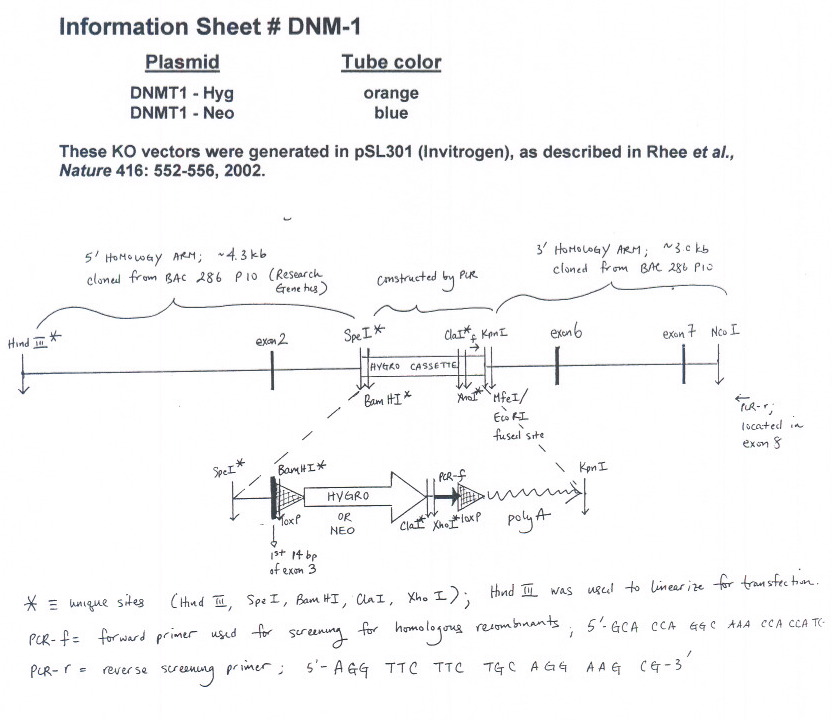 Information Sheet # DNM-1
Plasmid Tube color
DNMT1 - Hyg orange
DNMT1 - Neo blue
These KO vectors were generated in pSL301 (Invitrogen), as described in Rhee et al.,
Nature 416: 552-556, 2002.
5' HOMOLOGY ARM; ~4.3kb
cloned from BAC 286 P10 (Research
Genetics)
constructed by PCR
3' HOMOLOGY ARM; ~3.0 kb
cloned from BAC 286 P10
Hind III *
exon 2
SpeI*
ClaI*
f
KpnI
exon 6
exon 7
NcoI
HYGRO CASSETTE
BamHI*
XhoI*
MfeI/
EcoRI
fused site
PCR-r;
located in
exon 8
SpeI*
BamHI*
PCR-f
KpnI
HYGRO
OR
NEO
loxP
ClaI*
XhoI*
loxP
polyA
1st 14 bp
of exon 3
* ≡ unique sites (Hind III, SpeI, BamHI, ClaI, XhoI); Hind III was used to linearize for transfection.
PCR-f = forward primer used for screening for homologous recombinants; 5'-GCA CCA GGC AAA CCA CCA TG-
PCR-r = reverse screening primer; 5'-AGG TTC TTC TGC AGG AAG CG-3'